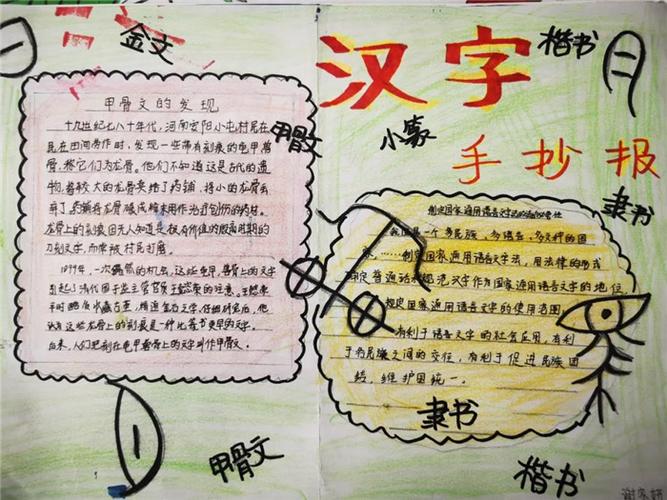 金文
汉字
楷书
小篆
手抄报
隶书
甲骨文
甲骨文的发现
十九世纪七八十年代,河南安阳小屯村民在
在田间劳作时,发现一些带有刻痕的龟甲兽
骨,称它们为龙骨。他们不知道这是古代的遗
物,着较大的龙骨卖给了药铺,将小的龙骨
用作治疗创伤的药材。
龙骨上的刻痕但无人知道是极有价值的殷商时期的
刻文字,而常被村民
1899年,一次偶然的机会,这些龟甲、兽骨上的文字
引起了清代国子监主管官员王懿荣的注意。
他
认为这些龙骨上的刻 是一种比 书更早的文字。
后来,人们把刻在龟甲兽骨上的文字叫作甲骨文。
制定国家通用语言文字法的 必要性
我国是一个多民族,多语言,多文种的国
家,……制定国家通用语言文字法,用法律的形式
确定普通话和规范汉字作为国家通用语言文字的地位,
规定国家通用语言文字的使用范围
有利于语言文字的社会应用,有利
于各民族之间的交往,有利于促进民族团
结,维护国统一。
隶书
甲骨文
楷书